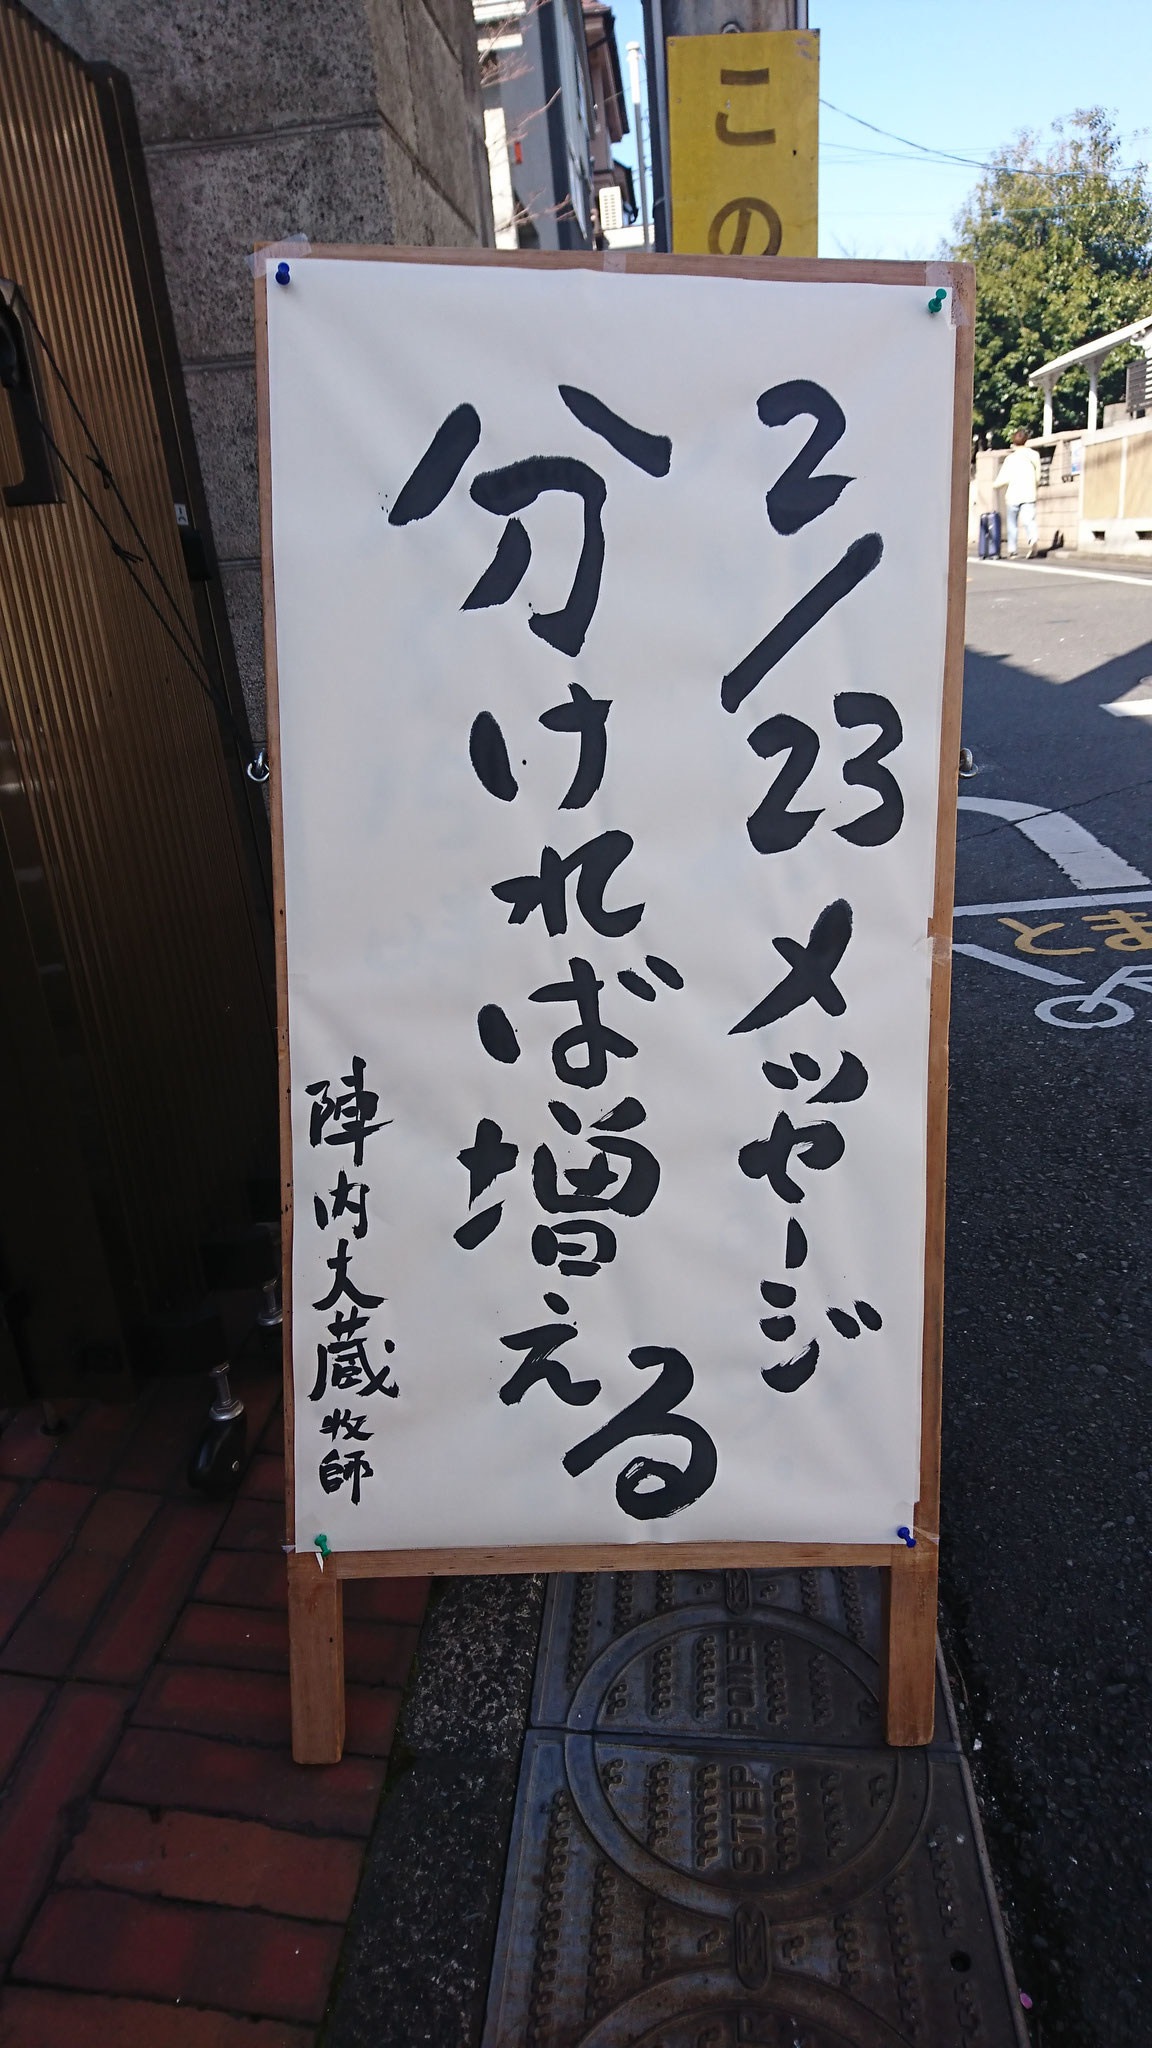 2/23 メッセージ
分ければ増える
陣内大蔵牧師
この
とま
POWER
STEP